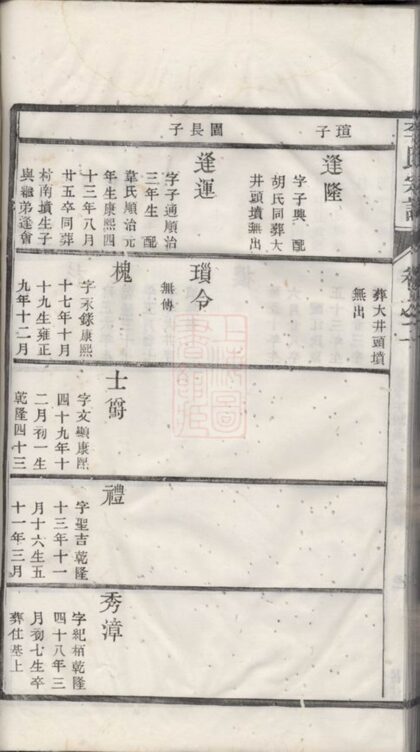 葬大井頭墳
無出
瑄子
逢隆
字子興 配
胡氏同葬大
井頭墳無出
瓆令
無傳
圖長子
逢運
字子通順治
三年生 配
葉氏順治元
年生康熙四
十三年八月
廿五卒同葬
村南墳生子
與繼弟逢會
槐
字永錄康熙
十七年十月
十九生雍正
九年十二月
士爵
字文顯康熙
四十九年十
二月初一生
乾隆四十三
禮
字聖吉乾隆
十三年十一
月十六生五
十一年三月
秀漳
字紀栢乾隆
四十八年三
月初七生卒
葬仕基上